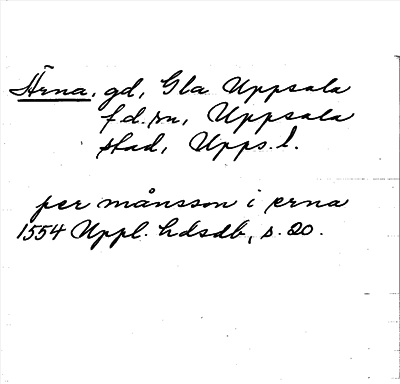 Ärna, gd, Gla Uppsala
f d. sn, Uppsala
stad, Upps. l.
per månsson i erna
1554 Uppl. hdsdb, s. 20.